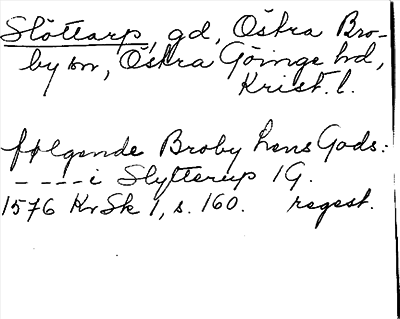 Slöttarp, gd, Östra Bro-
by sn, Östra Göinge hd,
Krist. l.
følgende Broby Lens Gods:
----i Slytterup 1G.
1576 KrSk 1, s. 160. regest.